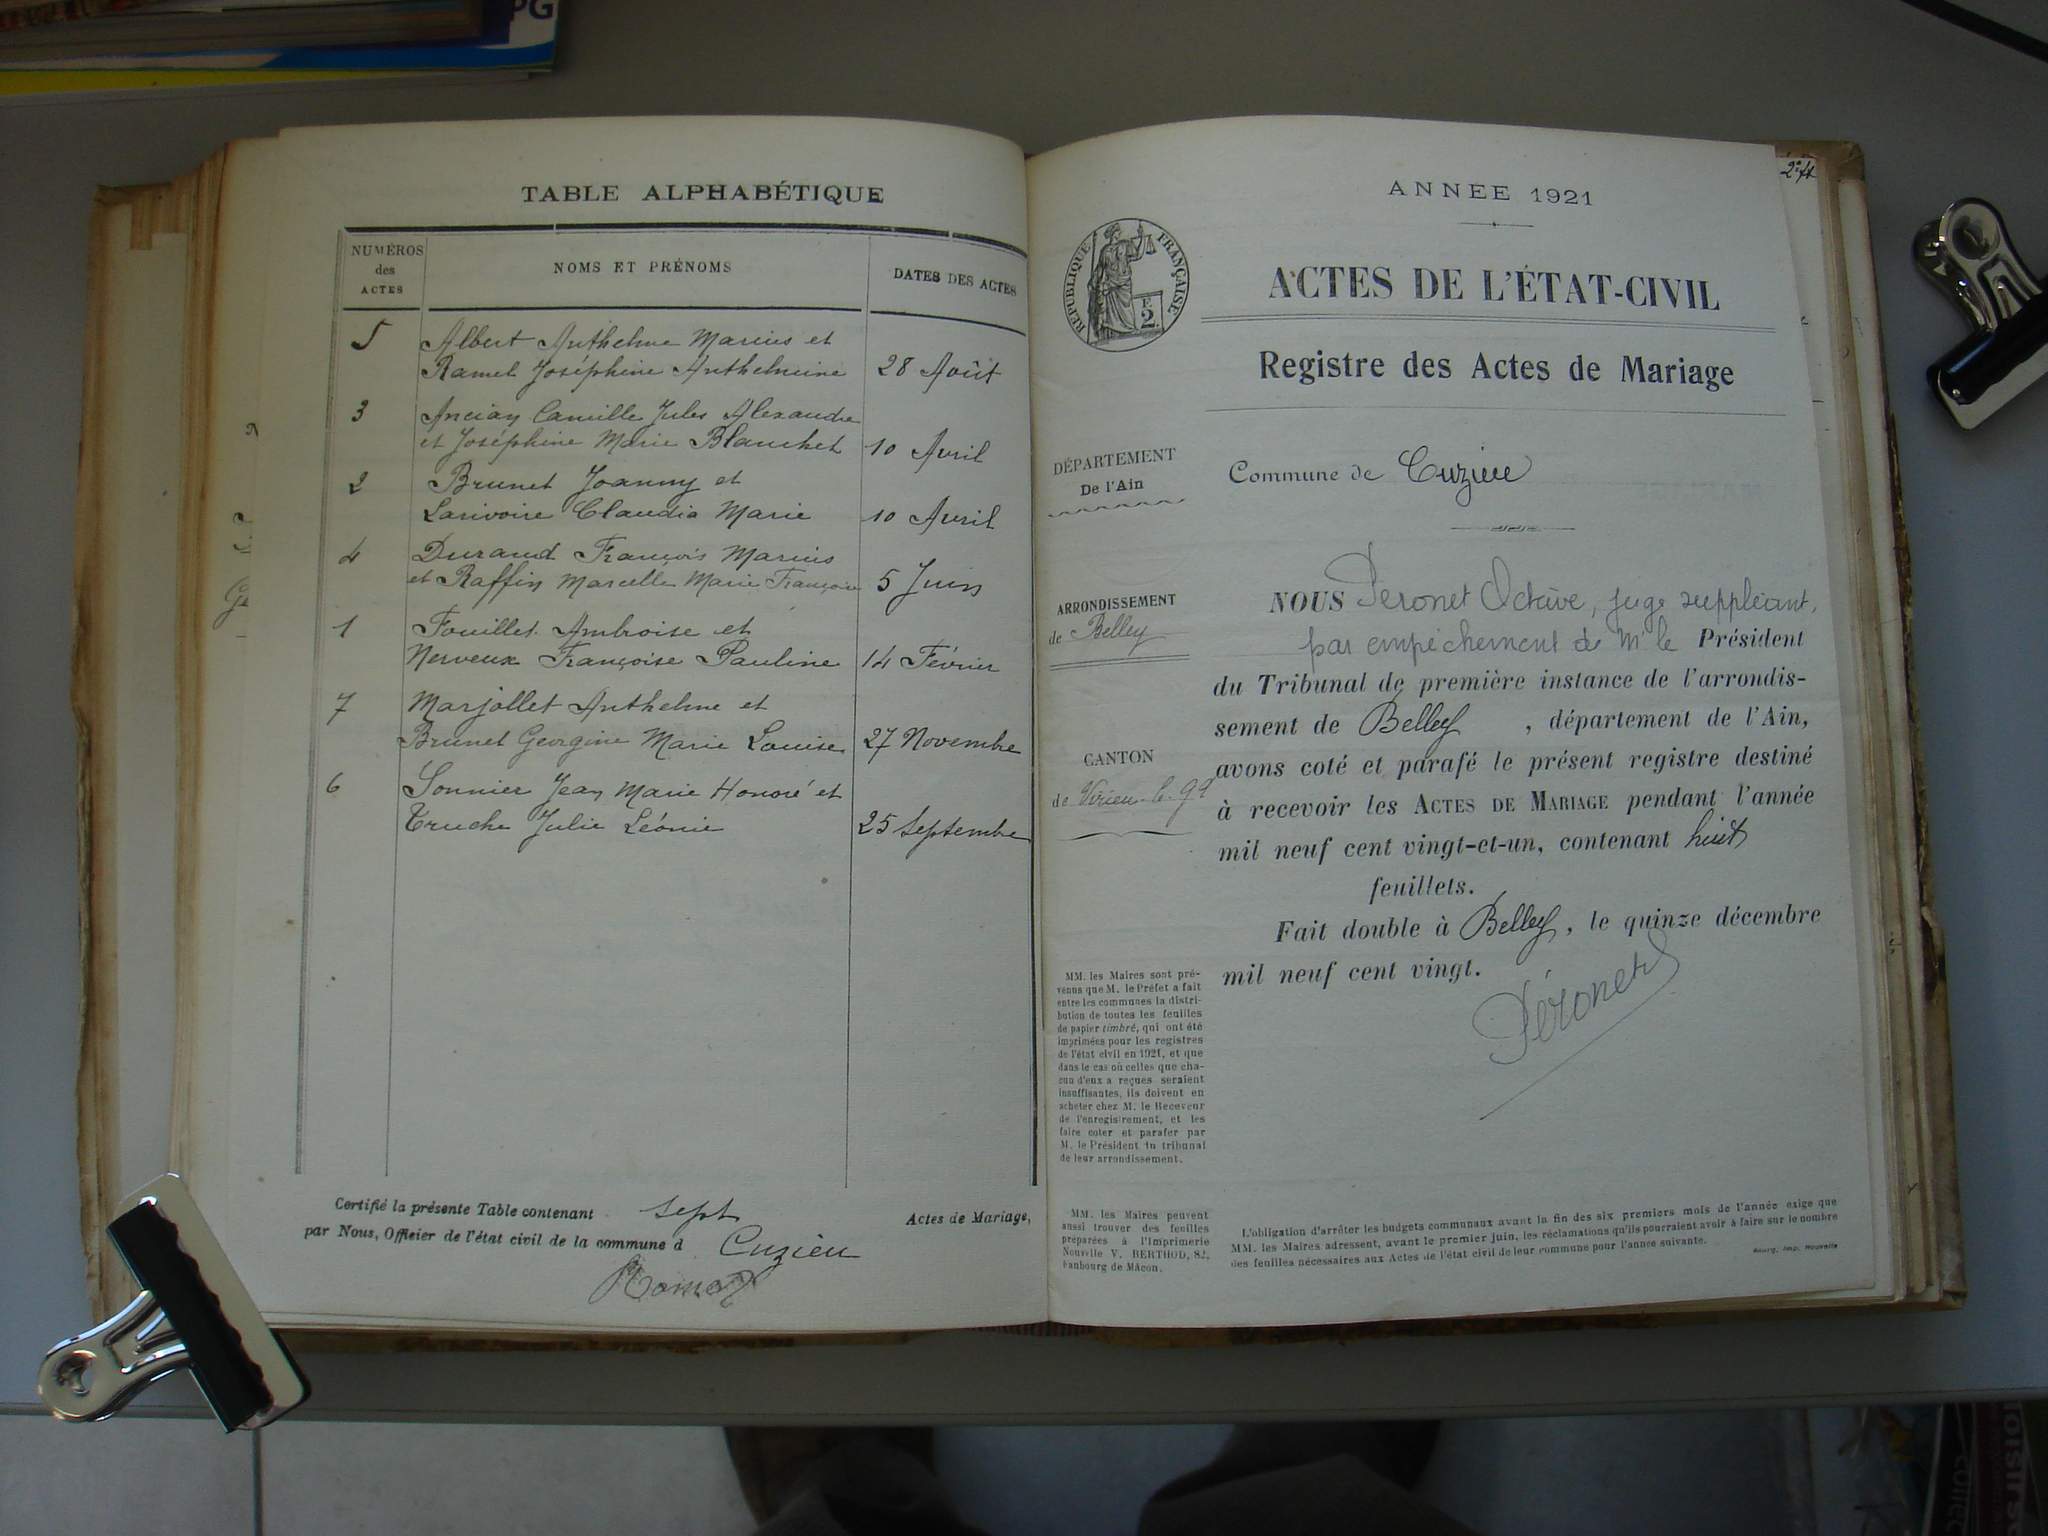 PG
TABLE ALPHABÉTIQUE
NUMÉROS
des
ACTES
NOMS ET PRÉNOMS
DATES DES ACTES
5 Albert Anthelme Marius et
Ramel Joséphine Anthelmine 28 Août
3 Ancian Camille Jules Alexandre
et Joséphine Marie Blanchet 10 Avril
2 Brunet Joanny et
Larivoire Claudia Marie 10 Avril
4 Durand François Marius
et Raffin Marcelle Marie Françoise 5 Juin
1 Fouillet Ambroise et
Nerveux Françoise Pauline 14 Février
7 Marjollet Anthelme et
Brunet Georgine Marie Louise 27 Novembre
6 Sonnier Jean Marie Honoré et
Truche Julie Léonie 25 Septembre
Certifié la présente Table contenant sept Actes de Mariage,
par Nous, Officier de l'état civil de la commune d Cuzieu
ANNÉE 1921
RÉPUBLIQUE FRANÇAISE
2
ACTES DE L'ÉTAT-CIVIL
Registre des Actes de Mariage
DÉPARTEMENT
De l'Ain
Commune de Cuzieu
ARRONDISSEMENT
de Belley
CANTON
de Virieu-le-Gd
NOUS Péronet Octave, juge suppléant,
par empêchement de Mr le Président
du Tribunal de première instance de l'arrondis-
sement de Belley, département de l'Ain,
avons coté et parafé le présent registre destiné
à recevoir les ACTES DE MARIAGE pendant l'année
mil neuf cent vingt-et-un, contenant huit
feuillets.
Fait double à Belley, le quinze décembre
mil neuf cent vingt.
Péronet
MM. les Maires sont pré-
venus que M. le Préfet a fait
entre les communes la distri-
bution de toutes les feuilles
de papier timbré, qui ont été
imprimées pour les registres
de l'état civil en 1921, et que
dans le cas où celles que cha-
cun d'eux a reçues seraient
insuffisantes, ils doivent en
acheter chez M. le Receveur
de l'enregistrement, et les
faire coter et parafer par
M. le Président du tribunal
de leur arrondissement.
MM. les Maires peuvent
aussi trouver des feuilles
préparées à l'Imprimerie
Nouvelle V. BERTHOD, 82,
faubourg de Mâcon.
L'obligation d'arrêter les budgets communaux avant la fin des six premiers mois de l'année exige que
MM. les Maires adressent, avant le premier juin, les réclamations qu'ils pourraient avoir à faire sur le nombre
des feuilles nécessaires aux Actes de l'état civil de leur commune pour l'année suivante.
Bourg, Imp. Nouvelle